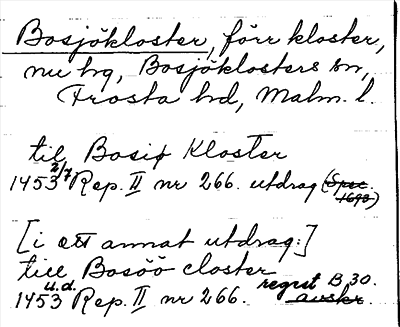 Bosjökloster, förr kloster,
nu hg, Bosjöklosters sn,
Frosta hd, Malm. l.
til Bosiø Kloster
1453 2/7 Rep. II nr 266. utdrag (Spec. 1698)
[i ett annat utdrag:]
till Bosöö closter
1453 u.d. Rep. II nr 266. regest B 30.
avskr.